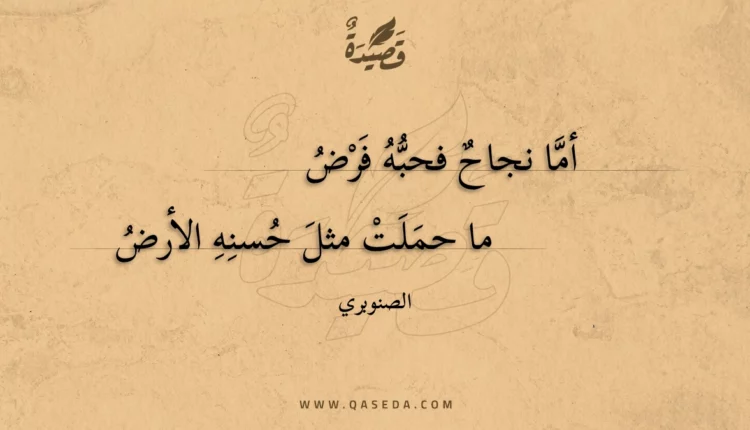 قَصِيْدَةٌ
أمَّا نجاحٌ فحبُّهُ فَرْضُ
ما حمَلَتْ مثلَ حُسنِهِ الأرضُ
الصنوبري
WWW.QASEDA.COM